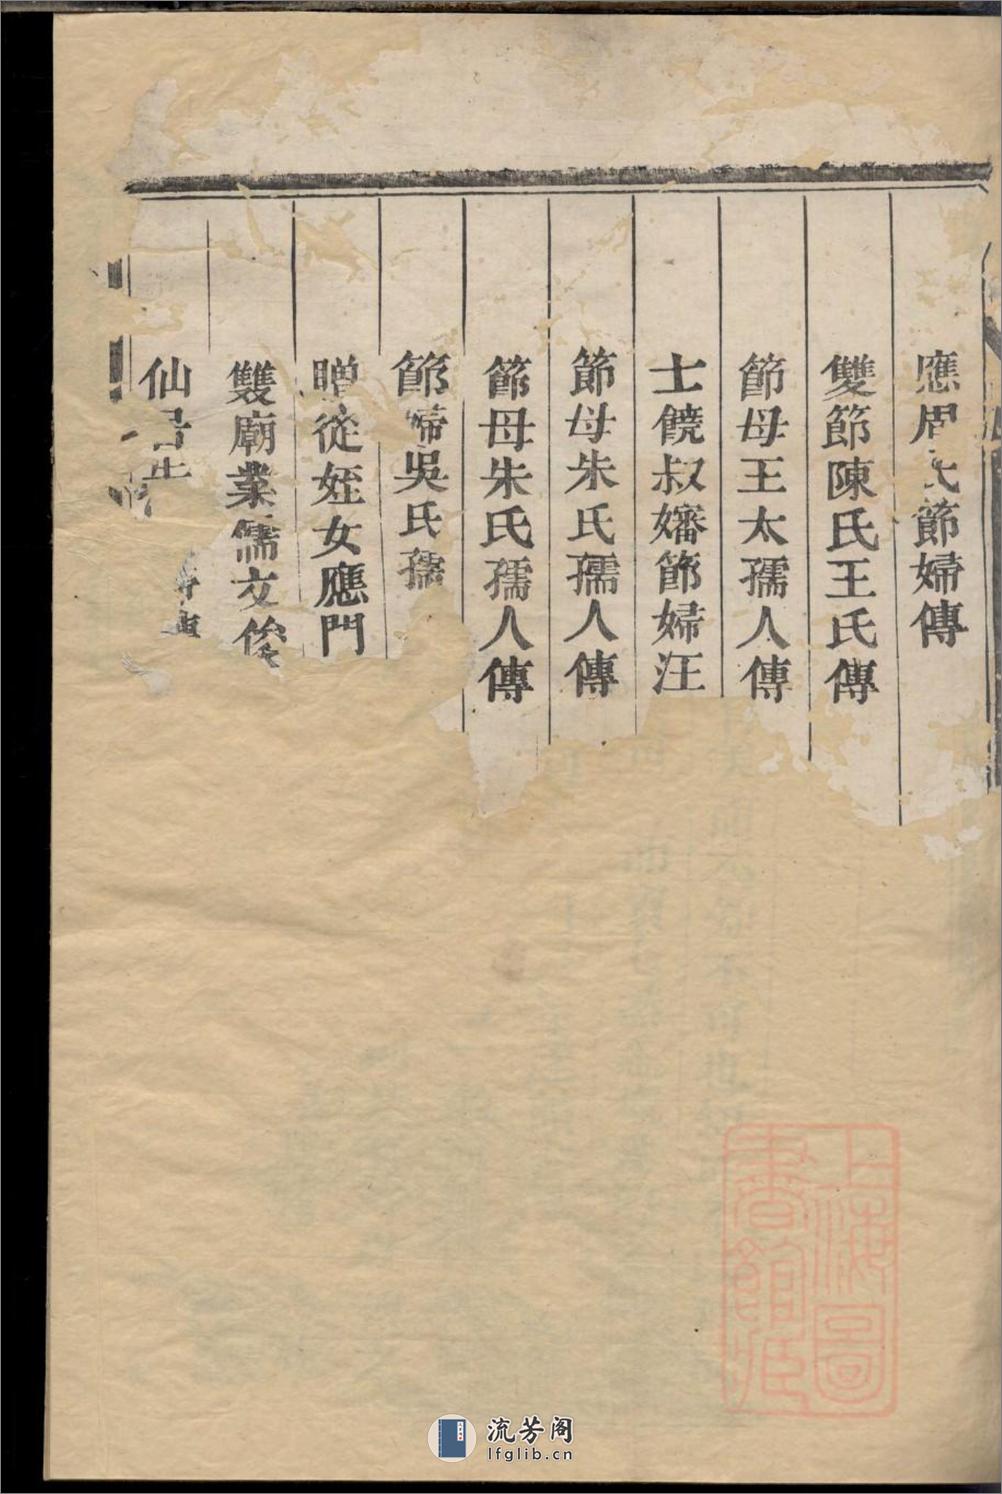 應周氏節婦傳
雙節陳氏王氏傳
節母王太孺人傳
士饒叔嬸節婦汪
節母朱氏孺人傳
節母朱氏孺人傳
節婦吳氏孺
贈從姪女應門
雙廟業儒文俊
仙居
上海圖書館藏
流芳阁
lfglib.cn